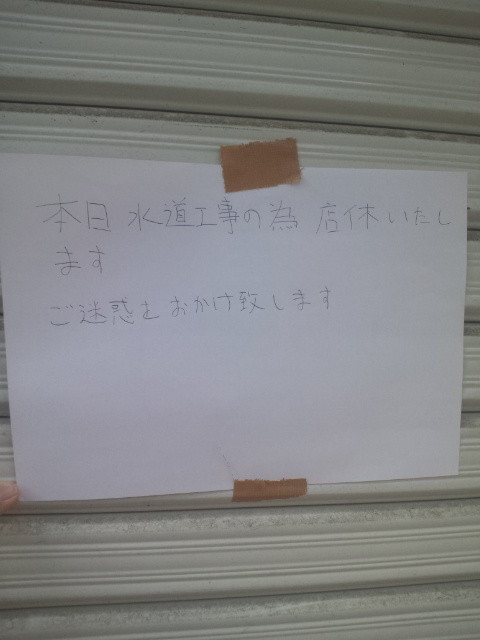 本日 水道工事の為 店休いたし
ます
ご迷惑をおかけ致します